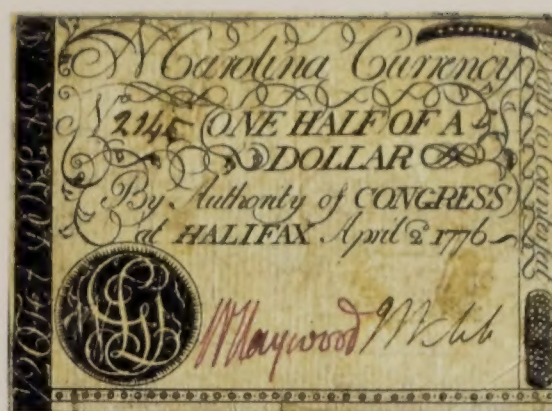 N Carolina Currency
N 2145 ONE HALF OF A
DOLLAR
By Authority of CONGRESS
at HALIFAX April 2d 1776
WHaywood JWebb
Death to counterfeit